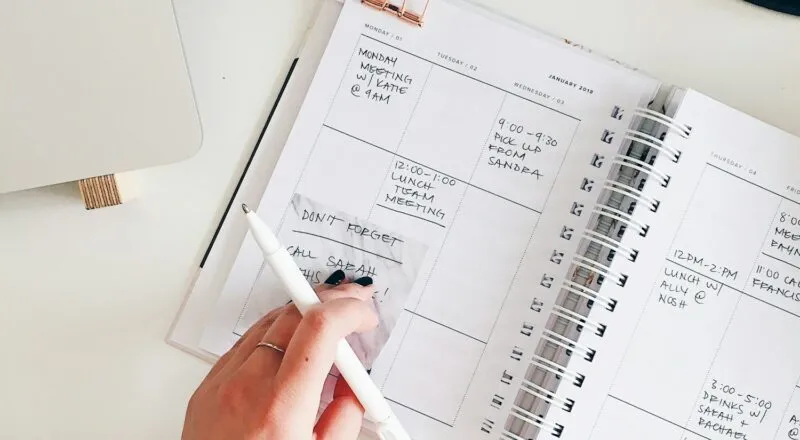 JANUARY 2018
MONDAY / 01
MONDAY
MEETING
W/ KATIE
@ 9AM
TUESDAY / 02
12:00-1:00
LUNCH
TEAM
MEETING
WEDNESDAY / 03
9:00-9:30
PICK UP
FROM
SANDRA
DON'T FORGET
CALL SARAH
!
THURSDAY / 04
12PM-2PM
LUNCH W/
ALLY @
NOSH
3:00-5:00
DRINKS W/
SARAH +
RACHAEL
8:00
11:00
CALL